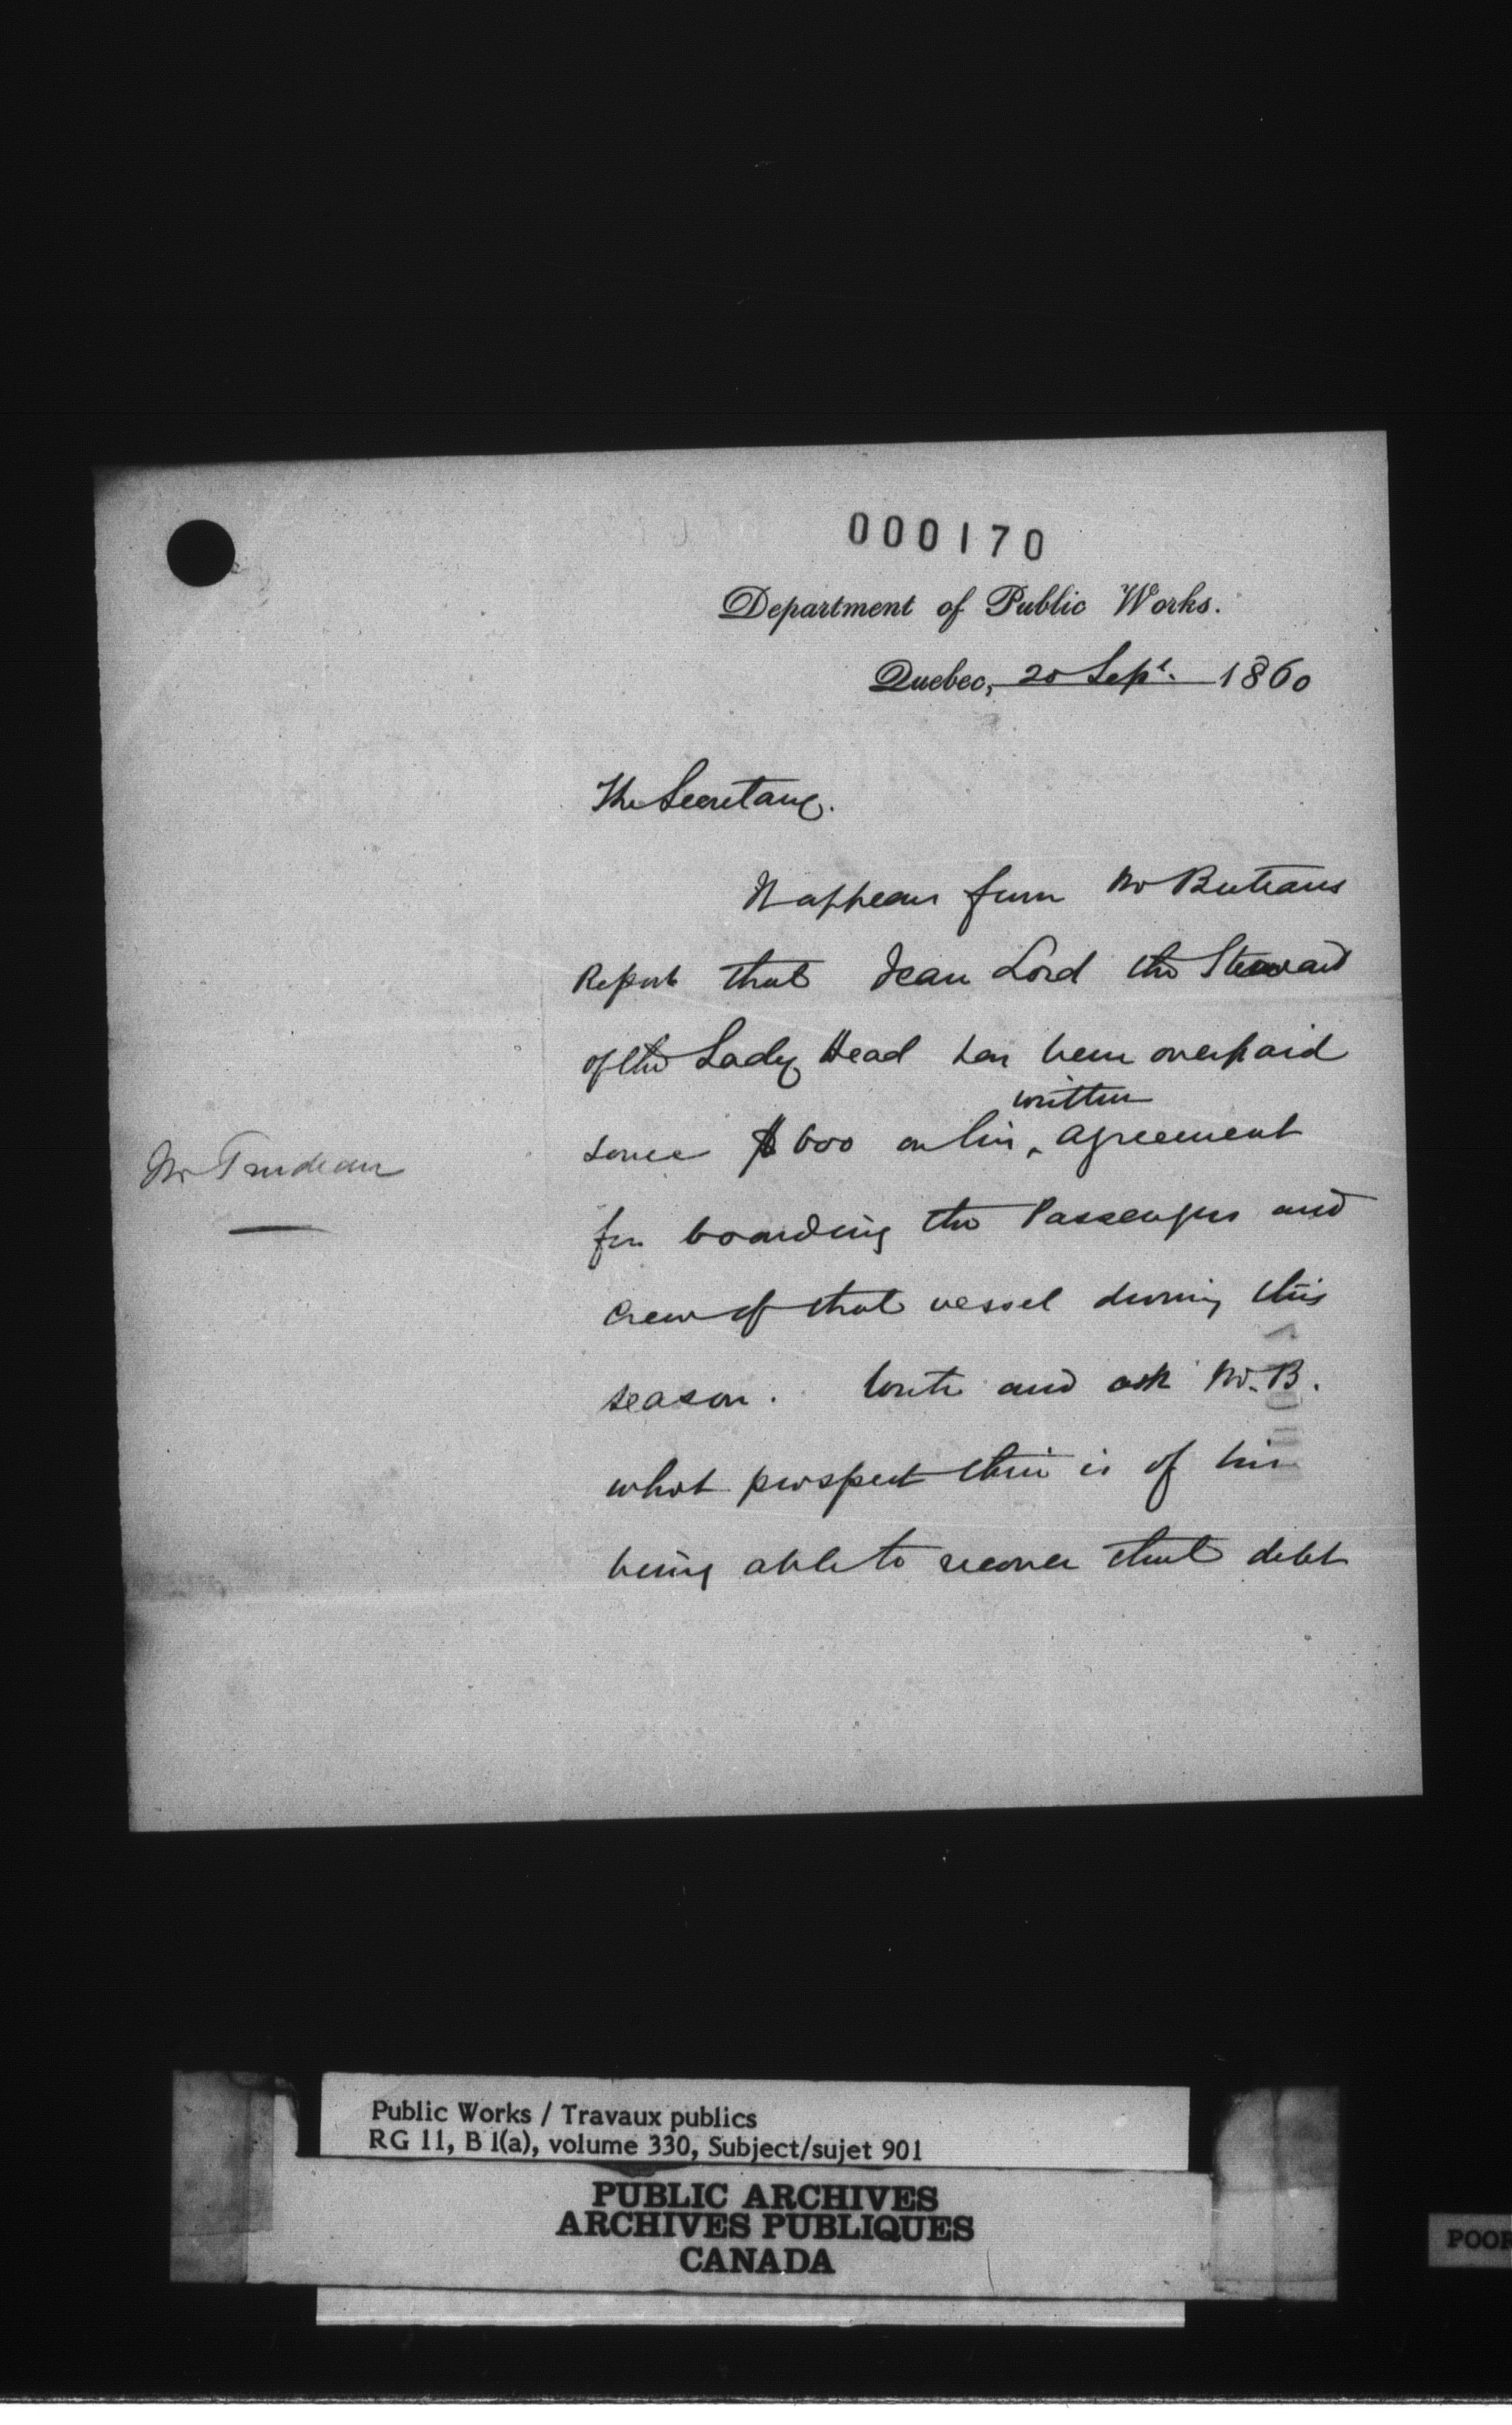 000170
Department of Public Works.
Quebec, 20 Sept. 1860
The Secretary.
It appears from Mr Buteaus
Report that Jean Lord the Steward
of the Lady Head has been overpaid
some $600 on his written agreement
Mr Trudeau
for boarding the Passengers and
Crew of that vessel during this
season. Write and ask Mr. B.
what prospect there is of his
being able to recover that debt
Public Works / Travaux publics
RG 11, B 1(a), volume 330, Subject/sujet 901
PUBLIC ARCHIVES
ARCHIVES PUBLIQUES
CANADA